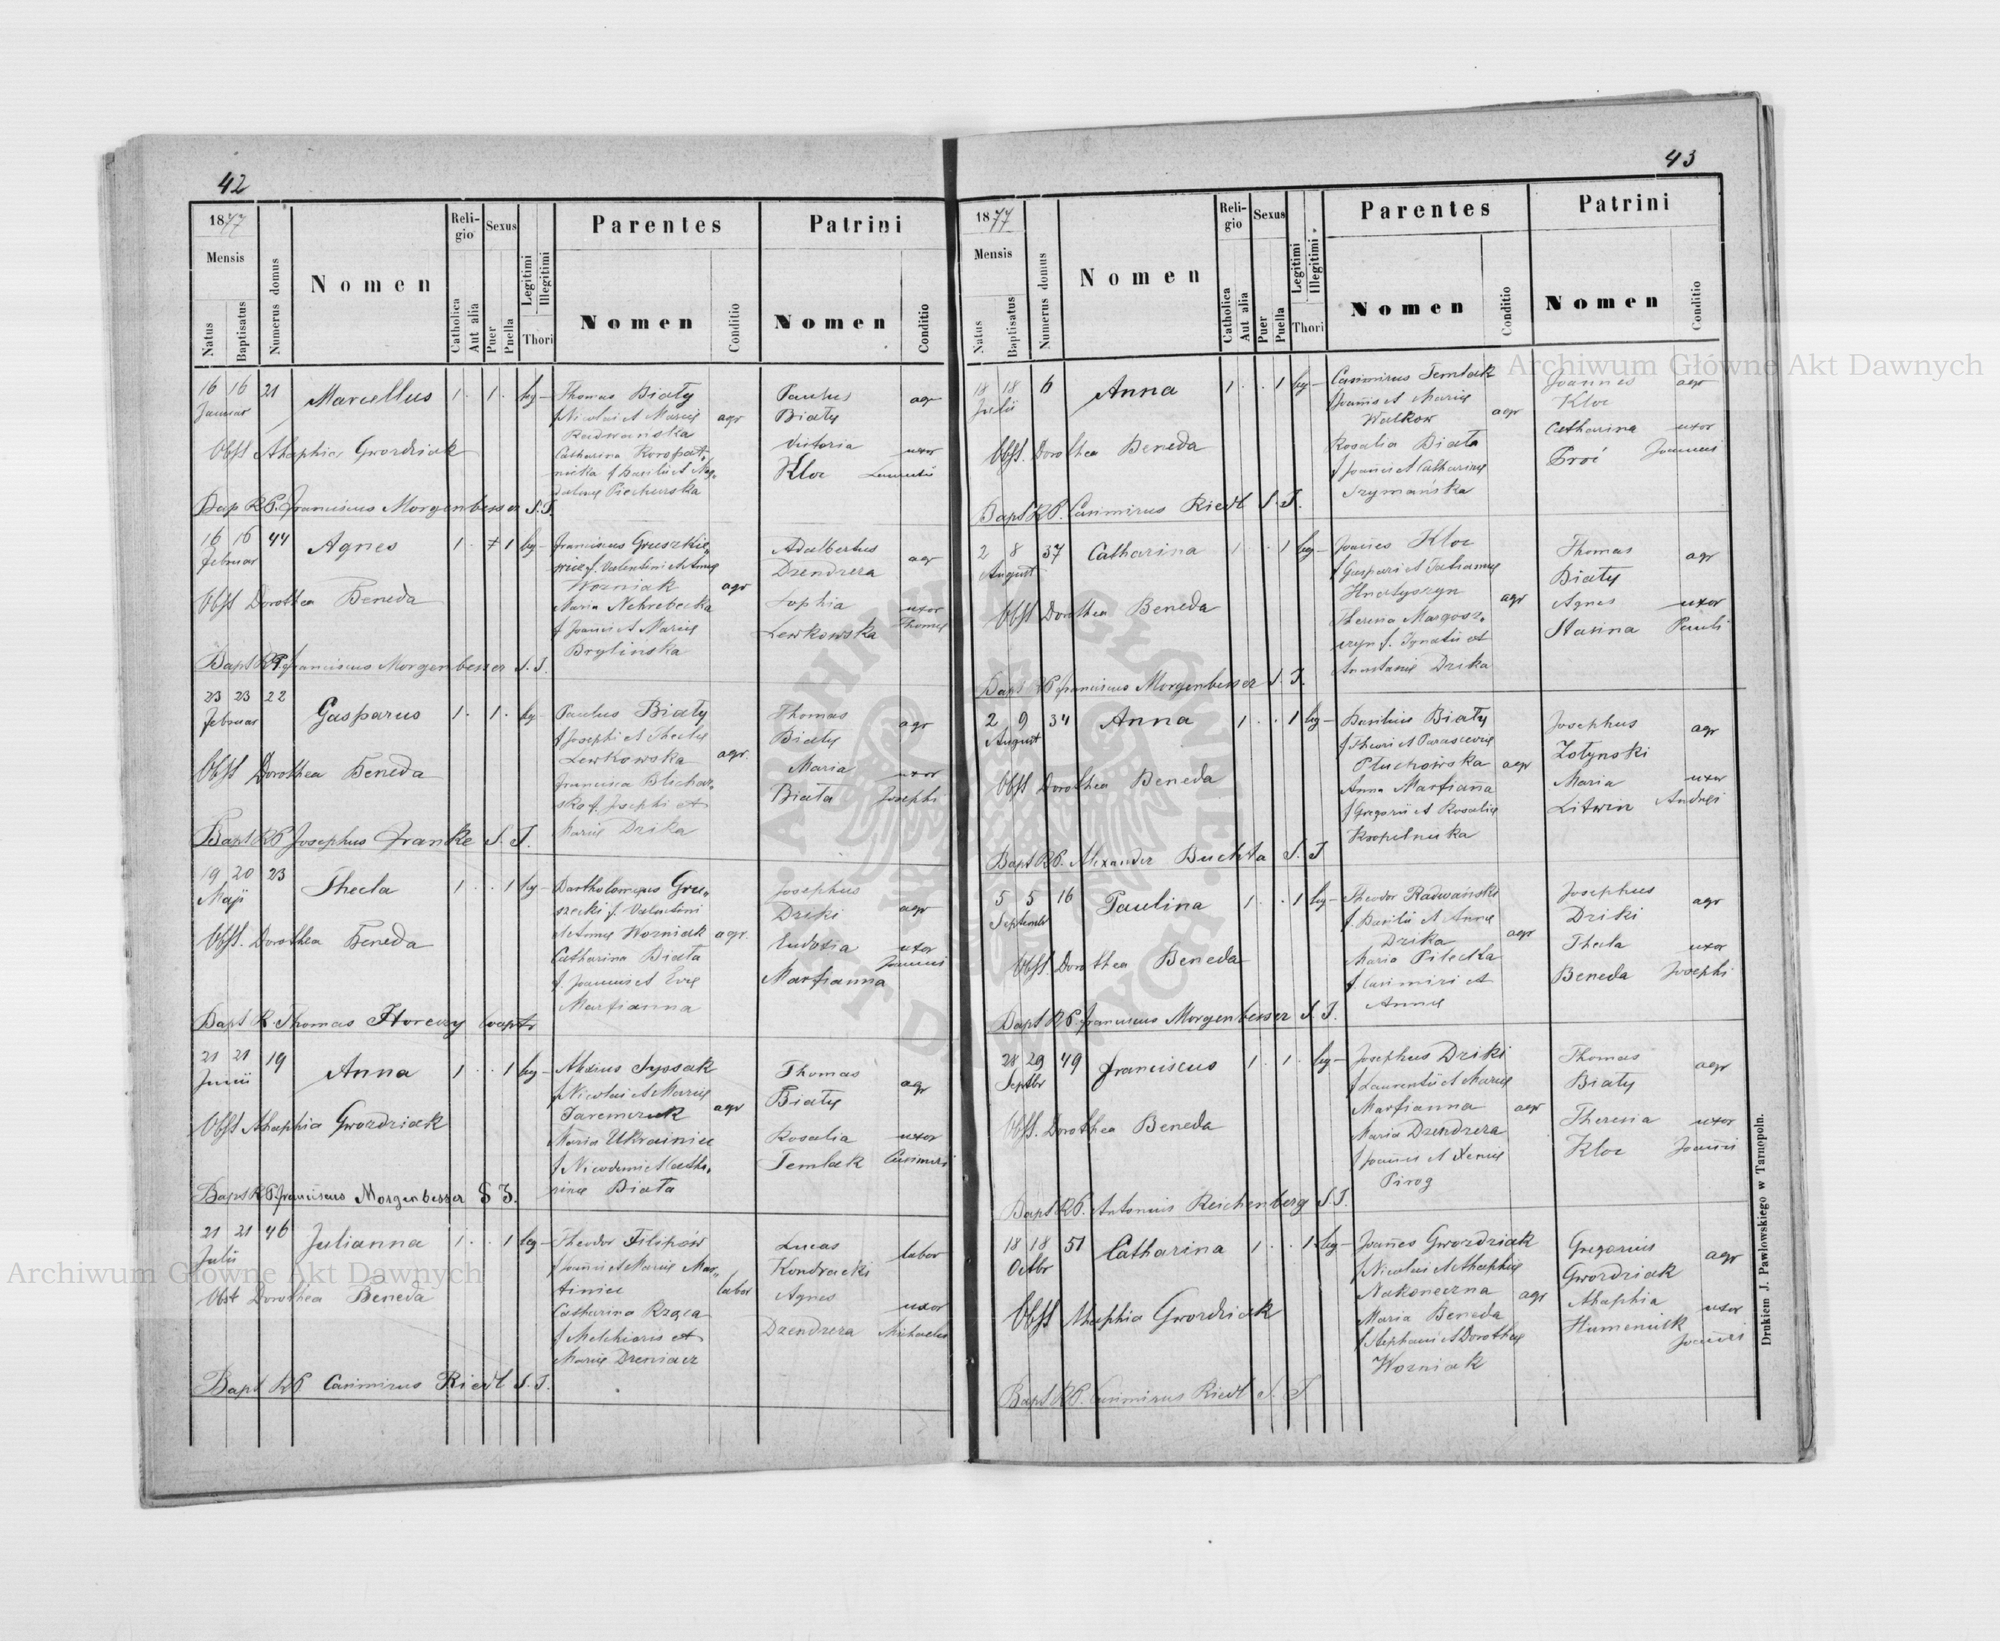 42
1877
Mensis
Natus
Baptisatus
Numerus domus
Nomen
Religio
Catholica
Aut alia
Sexus
Puer
Puella
Legitimi
Illegitimi
Thori
Parentes
Nomen
Conditio
Patrini
Nomen
Conditio
16 16 21 Marcellus 1 . 1 . leg -
Januar
Thomas Biały
f Nicolai et Mariæ
Radwańska
Catharina
nicka f Basilii et Mag-
dalenæ Piechurska
agr
Paulus
Biały
agr
Victoria uxor
Kloc
Obst Ahaphia Gwozdziak
Bap RP. Franciscus Morgenbesser S. J.
16 16 44 Agnes 1 . 1 leg -
Februar
Franciscus Gruszkie-
wicz f. Valentini et Annæ
Wozniak
Maria Nehrebecka
f Joañis et Mariæ
Brylinska
agr
Adalbertus
Dzendzera
agr
Sophia uxor
Lewkowska Thomæ
Obst Dorothea Beneda
Bapt RP Franciscus Morgenbesser S. J.
23 23 22 Gasparus 1 . 1 . leg -
Februar
Paulus Biały
f Josephi et Theclæ
Lewkowska
Francisca Blichar-
ska f. Josephi et
Mariæ Dzika
agr
Thomas
Biały
agr
Maria uxor
Biała Josephi
Obst Dorothea Beneda
Bapt RP Josephus Franke S. J.
19 20 23 Thecla 1 . . 1 leg -
Maji
Bartholomæus Gru-
szecki f. Valentini
et Annæ Wozniak
Catharina Biała
f. Joannis et Evæ
Marfianna
agr.
Josephus
Dziki
agr
Eudoxia uxor
Joannis
Marfianna
Obst. Dorothea Beneda
Bapt R. Thomas Horeczy Coopt
21 21 19 Anna 1 . . 1 leg -
Junii
Alexius Syssak
f Nicolai et Mariæ
Jaremczuk
Maria Ukrainiec
f Nicodemi et Catha-
rinæ Biała
agr
Thomas
Biały
agr
Rosalia uxor
Temlak Casimiri
Obst Ahaphia Gwozdziak
Bapt RP. Franciscus Morgenbesser S J.
21 21 46 Julianna 1 . . 1 leg -
Julii
Theodor Filipów
f Joañis et Mariæ Mar-
tiniec
Catharina Rzęsa
f Melchioris et
Mariæ Dzeniacz
labor
Lucas
Kondracki
labor
Agnes uxor
Dzendzera Michaelis
Obst Dorothea Beneda
Bapt RP Casimirus Riedl S. J.
43
1877
Mensis
Natus
Baptisatus
Numerus domus
Nomen
Religio
Catholica
Aut alia
Sexus
Puer
Puella
Legitimi
Illegitimi
Thori
Parentes
Nomen
Conditio
Patrini
Nomen
Conditio
18 18 6 Anna 1 . . 1 leg -
Julii
Casimirus Temlak
f Joañis et Mariæ
Walkow
Rosalia Biała
f Joañis et Catharinæ
Szymańska
agr
Joannes
Kloc
agr
Catharina uxor
Proć Joannis
Obst. Dorothea Beneda
Bapt RP. Casimirus Riedl S. J.
2 8 37 Catharina 1 . . 1 leg -
August
Joañes Kloc
f Gaspari et Tatiannæ
Hnatyszyn
Theresa Margosz-
czyn f. Ignatii et
Anastasiæ Dzika
agr
Thomas
Biały
agr
Agnes uxor
Stasina Pauli
Obst Dorothea Beneda
Bapt RP Franciscus Morgenbesser S. J.
2 9 34 Anna 1 . . 1 leg -
August
Basilius Biały
f Theori et Parasceviæ
Pluchowska
Anna Marfiaña
f Gregorii et Rosaliæ
Kropelnicka
agr
Josephus
Zołynski
agr
Maria uxor
Litwin Andreæ
Obst Dorothea Beneda
Bapt RP. Alexander Buchta S. J
5 5 16 Paulina 1 . . 1 leg -
Septembr
Theodor Radwański
f. Basilii et Annæ
Dzika
Maria Pilecka
f. Casimiri et
Annæ
agr
Josephus
Dziki
agr
Thecla uxor
Beneda Josephi
Obst Dorothea Beneda
Bapt RP Franciscus Morgenbesser S. J.
28 29 49 Franciscus 1 . 1 . leg -
Septbr
Josephus Dziki
f Laurentii et Mariæ
Marfianna
Maria Dzendzera
f Joañis et Xeniæ
Pirog
agr
Thomas
Biały
agr
Theresia uxor
Kloc Joañis
Obst. Dorothea Beneda
Bapt RP. Antonius Reichenberg S. J.
18 18 51 Catharina 1 . . 1 leg -
Octbr
Joañes Gwozdziak
f Nicolai et Ahaphiæ
Nakoneczna
Maria Beneda
f Stephani et Dorotheæ
Wozniak
agr
Gregorius
Gwozdziak
agr
Ahaphia uxor
Humeniuk
Joañis
Obst Ahaphia Gwozdziak
Bapt RP. Casimirus Riedl S. J.
Drukiem J. Pawłowskiego w Tarnopolu.
Archiwum Główne Akt Dawnych
Archiwum Główne Akt Dawnych
Archiwum Główne Akt Dawnych
ARCHIWUM GŁÓWNE AKT DAWNYCH